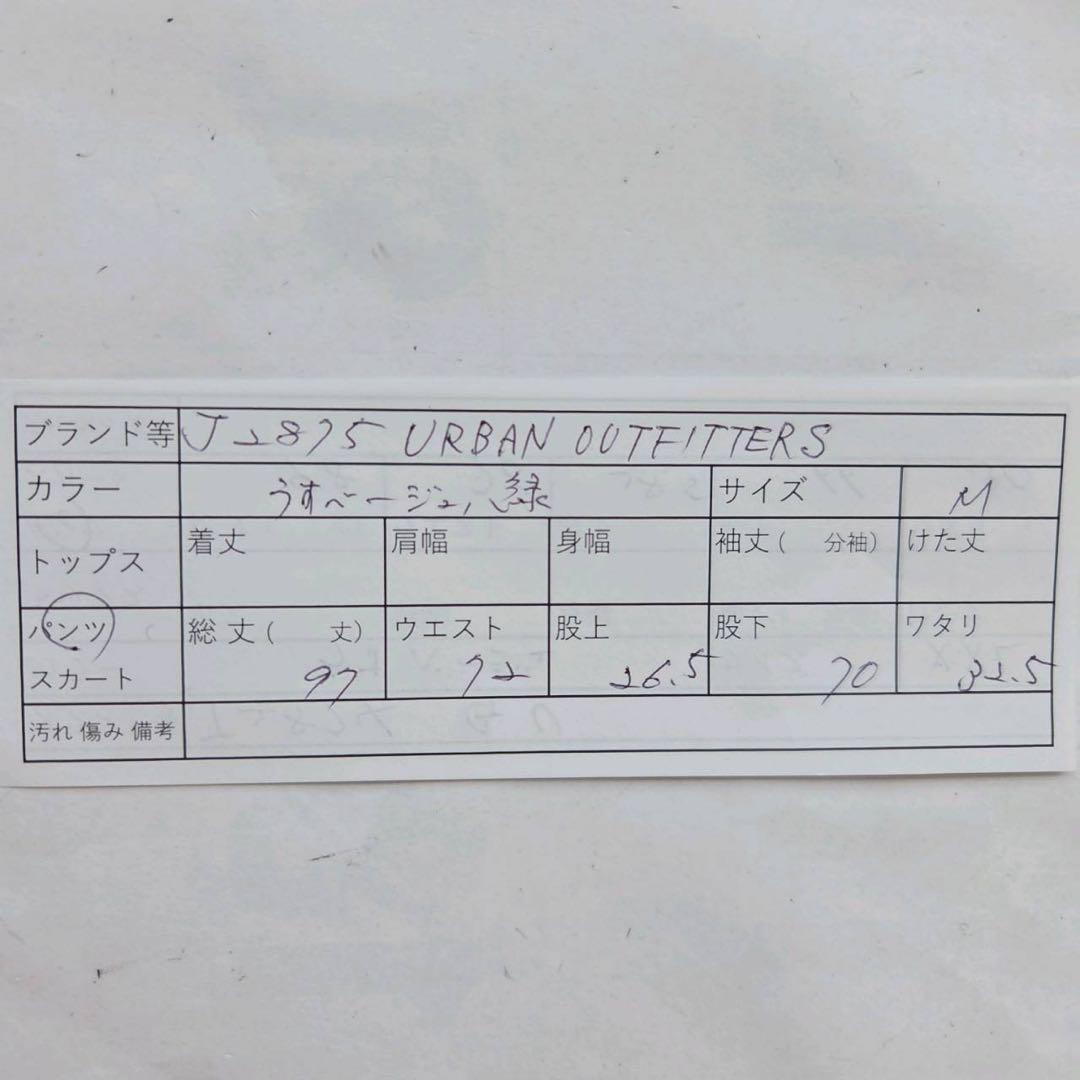 ブランド等 J2875 URBAN OUTFITTERS
カラー うすベージュ, 緑 サイズ M
トップス 着丈 肩幅 身幅 袖丈( 分袖) けた丈
パンツ 総丈( 丈) ウエスト 股上 股下 ワタリ
スカート 97 72 26.5 70 32.5
汚れ 傷み 備考